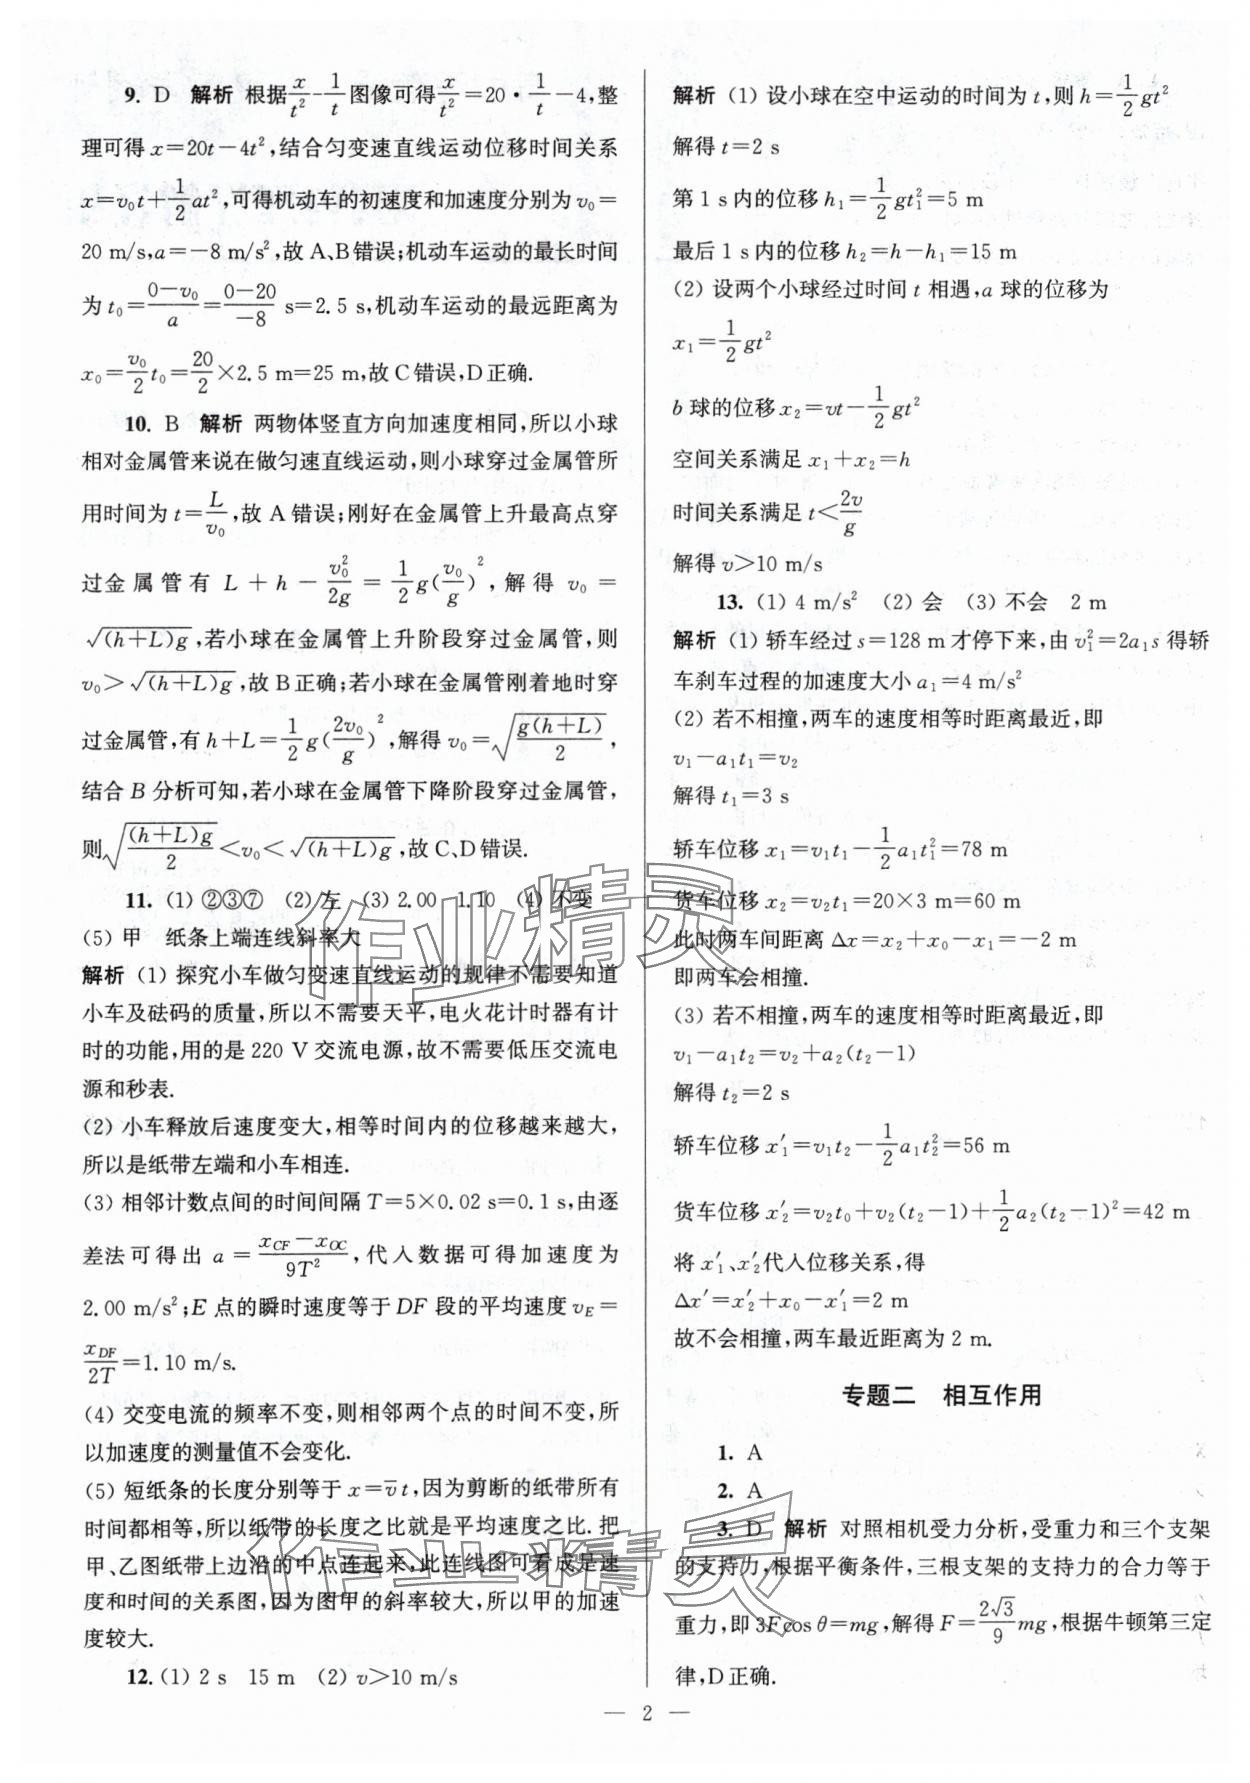 9. D 解析 根据x/t²-1/t图像可得x/t²=20·1/t-4,整
理可得 x=20t-4t²,结合匀变速直线运动位移时间关系
x=v₀t+1/2at²,可得机动车的初速度和加速度分别为 v₀=
20 m/s,a=-8 m/s²,故 A、B错误;机动车运动的最长时间
为 t₀=(0-v₀)/a=(0-20)/(-8) s=2.5 s,机动车运动的最远距离为
x₀=v₀/2 t₀=20/2×2.5 m=25 m,故 C错误,D正确.
10. B 解析 两物体竖直方向加速度相同,所以小球
相对金属管来说在做匀速直线运动,则小球穿过金属管所
用时间为 t=L/v₀,故 A 错误;刚好在金属管上升最高点穿
过金属管有 L+h-v₀²/2g=1/2g(v₀/g)²,解得 v₀=
√(h+L)g,若小球在金属管上升阶段穿过金属管,则
v₀>√(h+L)g,故 B正确;若小球在金属管刚着地时穿
过金属管,有 h+L=1/2g(2v₀/g)²,解得 v₀=√(g(h+L)/2),
结合 B 分析可知,若小球在金属管下降阶段穿过金属管,
则√((h+L)g/2)<v₀<√(h+L)g,故C、D错误.
11. (1) ②③⑦ (2) 左 (3) 2.00 1.10 (4) 不变
(5) 甲 纸条上端连线斜率大
解析 (1) 探究小车做匀变速直线运动的规律不需要知道
小车及砝码的质量,所以不需要天平,电火花计时器有计
时的功能,用的是 220 V 交流电源,故不需要低压交流电
源和秒表.
(2) 小车释放后速度变大,相等时间内的位移越来越大,
所以是纸带左端和小车相连.
(3) 相邻计数点间的时间间隔 T=5×0.02 s=0.1 s,由逐
差法可得出 a=(x_CF-x_OC)/9T²,代入数据可得加速度为
2.00 m/s²;E 点的瞬时速度等于 DF 段的平均速度 v_E=
x_DF/2T=1.10 m/s.
(4) 交变电流的频率不变,则相邻两个点的时间不变,所
以加速度的测量值不会变化.
(5) 短纸条的长度分别等于 x=v̄t,因为剪断的纸带所有
时间都相等,所以纸带的长度之比就是平均速度之比. 把
甲、乙图纸带上边沿的中点连起来,此连线图可看成是速
度和时间的关系图,因为图甲的斜率较大,所以甲的加速
度较大.
12. (1) 2 s 15 m (2) v>10 m/s
解析 (1) 设小球在空中运动的时间为 t,则 h=1/2gt²
解得 t=2 s
第 1 s 内的位移 h₁=1/2gt₁²=5 m
最后 1 s 内的位移 h₂=h-h₁=15 m
(2) 设两个小球经过时间 t 相遇,a 球的位移为
x₁=1/2gt²
b 球的位移 x₂=vt-1/2gt²
空间关系满足 x₁+x₂=h
时间关系满足 t<2v/g
解得 v>10 m/s
13. (1) 4 m/s² (2) 会 (3) 不会 2 m
解析 (1) 轿车经过 s=128 m才停下来,由 v₁²=2a₁s 得轿
车刹车过程的加速度大小 a₁=4 m/s²
(2) 若不相撞,两车的速度相等时距离最近,即
v₁-a₁t₁=v₂
解得 t₁=3 s
轿车位移 x₁=v₁t₁-1/2a₁t₁²=78 m
货车位移 x₂=v₂t₁=20×3 m=60 m
此时两车间距离 Δx=x₂+x₀-x₁=-2 m
即两车会相撞.
(3) 若不相撞,两车的速度相等时距离最近,即
v₁-a₁t₂=v₂+a₂(t₂-1)
解得 t₂=2 s
轿车位移 x₁′=v₁t₂-1/2a₁t₂²=56 m
货车位移 x₂′=v₂t₀+v₂(t₂-1)+1/2a₂(t₂-1)²=42 m
将 x₁′、x₂′代入位移关系,得
Δx′=x₂′+x₀-x₁′=2 m
故不会相撞,两车最近距离为 2 m.
专题二 相互作用
1. A
2. A
3. D 解析 对照相机受力分析,受重力和三个支架
的支持力,根据平衡条件,三根支架的支持力的合力等于
重力,即 3Fcos θ=mg,解得 F=2√3/9mg,根据牛顿第三定
律,D正确.
— 2 —
作业精灵
作业精灵